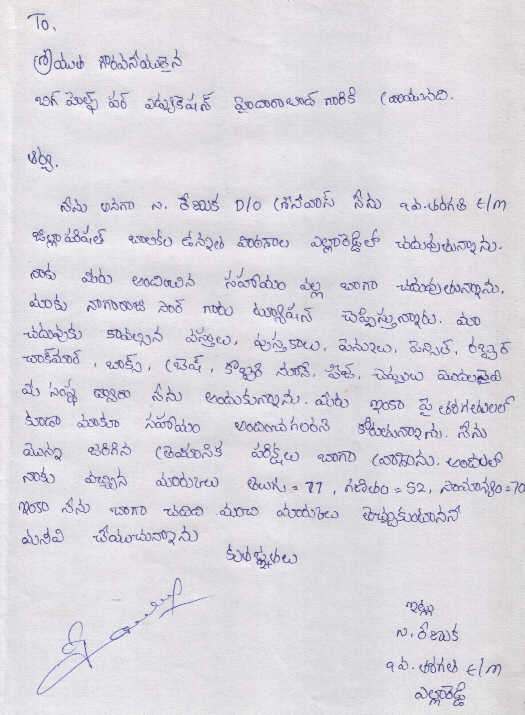 To,
శ్రీయుత గౌరవనీయులైన
బిగ్ హెల్ప్ ఫర్ ఎడ్యుకేషన్ హైదారాబాద్ గారికి వ్రాయునది.
ఆర్య,
నేను అనగా న. రేణుక D/O శ్రీనివాస్ నేను 9వ. తరగతి E/M
జిల్లాపరిషత్ బాలికల ఉన్నత పాఠశాల ఎల్లారెడ్డిలో చదువుతున్నాను.
నాకు మీరు అందించిన సహాయం వల్ల బాగా చదువుతున్నాను.
మాకు నాగారాజు సార్ గారు ట్యూషన్ చెప్పిస్తున్నారు. మా
చదువుకు కావల్సిన వస్తులు, పుస్తకాలు, పెన్నులు, పెన్సిల్, రబ్బర్
చాక్‌మార్, బాక్స్, బ్రెష్, కొబ్బరి నూనే, పేజ్, చెప్పులు మొదలైనవి
మీ సంస్థ ద్వారా నేను అందుకున్నాను. మీరు ఇంకా పై తరగతులలో
కూడా మాకూ సహాయం అందించగలరని కోరుతున్నాను. నేను
మొన్న జరిగిన త్రైమాసిక పరీక్షలు బాగా వ్రాశాను. అందులో
నాకు వచ్చిన మార్కులు తెలుగు = 77, గణితం = 52, సామాన్యం = 70
ఇంకా నేను బాగా చదివి మంచి మార్కులు తెచ్చుకుంటానని
మనవి చేయుచున్నాను
కృతజ్ఞతలు
ఇట్లు
న. రేణుక
9వ. తరగతి E/M
ఎల్లారెడ్డి